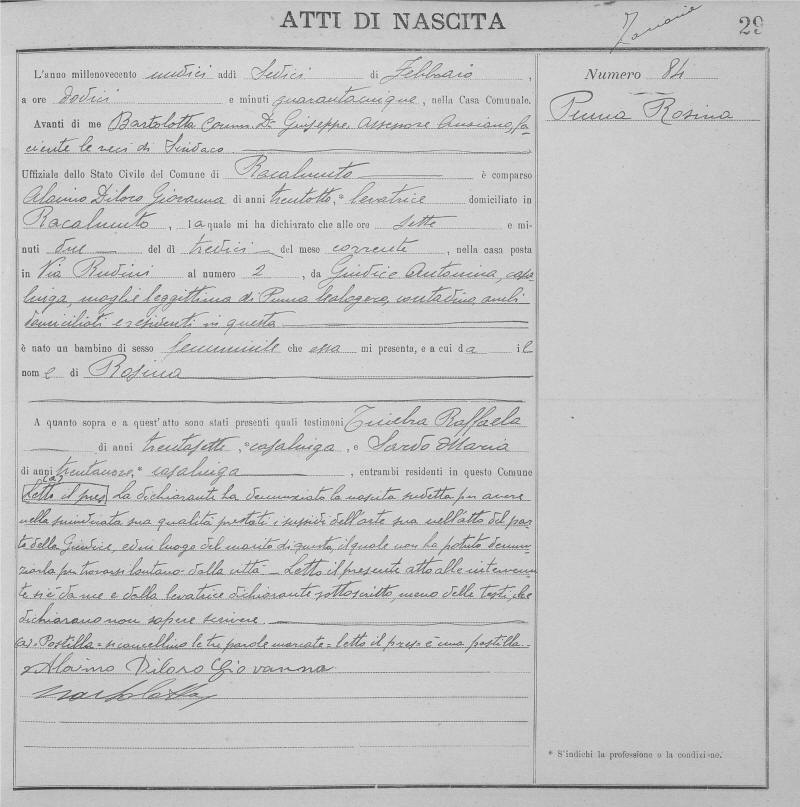 ATTI DI NASCITA
29
L'anno millenovecento undici addì Sedici di Febbraio,
a ore dodici e minuti quarantacinque, nella Casa Comunale.
Avanti di me Bartolotta Comm. Dr Giuseppe, Assessore Anziano, fa-
ciente le veci di Sindaco
Uffiziale dello Stato Civile del Comune di Racalmuto è comparso
Alaimo Diloro Giovanna di anni trentotto, * levatrice domiciliato in
Racalmuto, la quale mi ha dichiarato che alle ore sette e mi-
nuti due del dì tredici del mese corrente, nella casa posta
in Via Rudinì al numero 2, da Giudice Antonina, casa-
linga, moglie leggittima di Puma Calogero, contadino, ambi
domiciliati e residenti in questa
è nato un bambino di sesso femminile che essa mi presenta, e a cui da il
nome di Rosina
A quanto sopra e a quest'atto sono stati presenti quali testimoni Tinebra Raffaela
di anni trentasette, * casalinga, e Sardo Maria
di anni trentanove, * casalinga, entrambi residenti in questo Comune
(a)
Letto il pres La dichiarante ha denunziato la nascita sudetta per avere
nella suindicata sua qualità prestati i sussidi dell'arte sua nell'atto del par-
to della Giudice, ed in luogo del marito di questa, il quale non ha potuto denun-
ziarla per trovarsi lontano dalla città - Letto il presente atto alle intervenu-
te si è da me e dalla levatrice dichiarante sottoscritto, meno delle testi, che
dichiarano non sapere scrivere.
(a) Postilla = si cancellino le tre parole marcate = letto il pres = è una postilla.
Alaimo Diloro Giovanna
Bartolotta
Numero 84
Puma Rosina
* S'indichi la professione o la condizione.